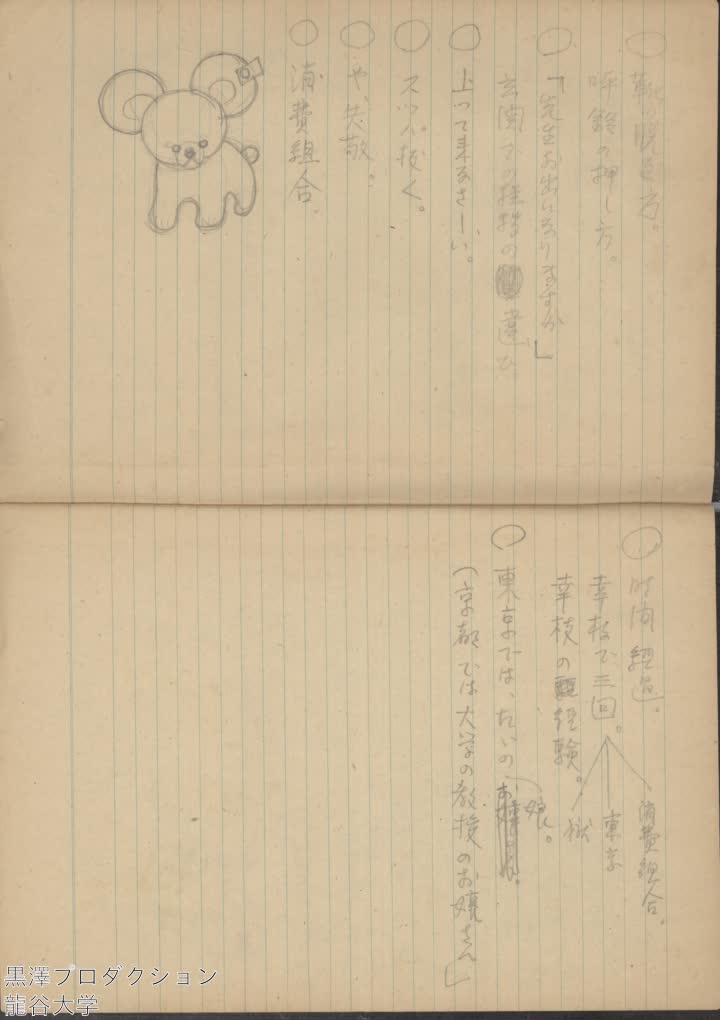 ○ 靴の脱ぎ方。
呼鈴の押し方。
○ 「先生お出になりますか」
玄関での挨拶の違ひ
○ 上って来なさーい。
○ スッパ抜く。
○ や、失敬。
○ 消費組合。
○ 時間経過。
幸枝で三回。
消費組合。
東京
獄
幸枝の経験。
○ 東京では、たいの娘。
(京都では大学の教授のお嬢さん」
黒澤プロダクション
龍谷大学